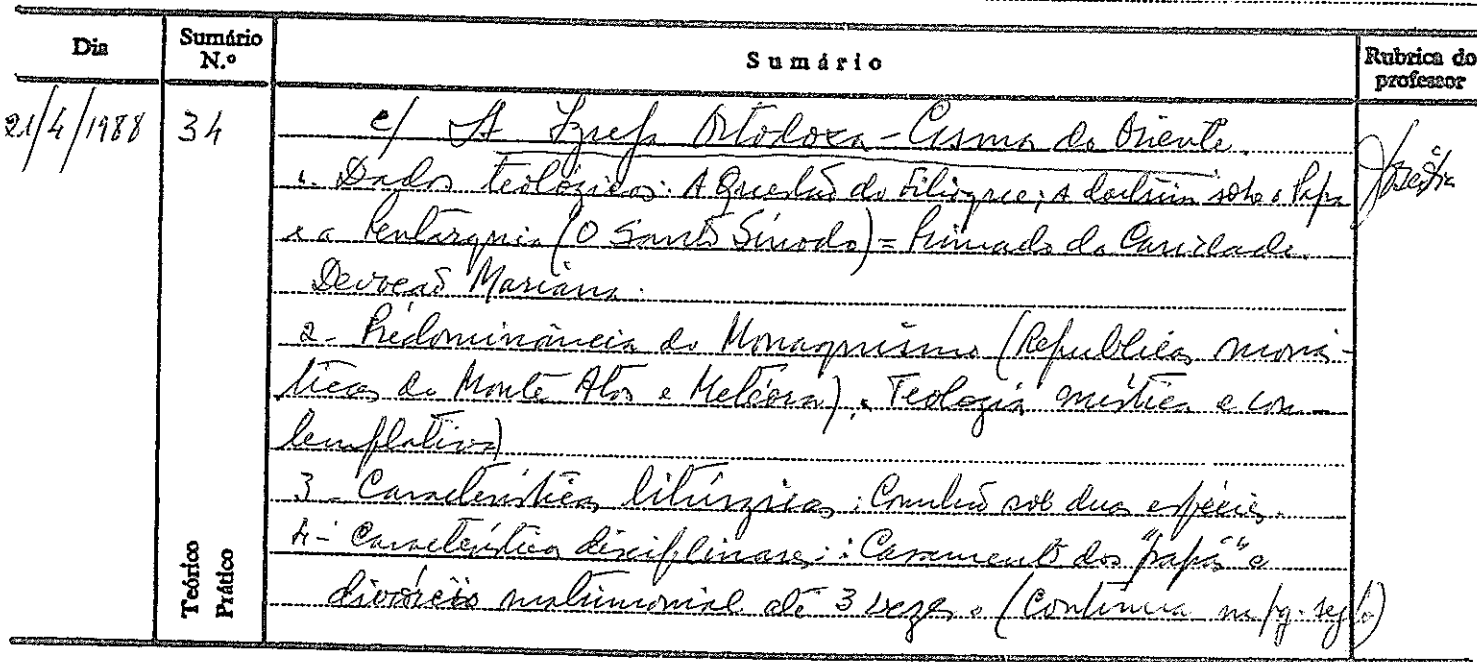 Dia Sumário N.º Sumário Rubrica do professor
21/4/1988 34 c/ A Igreja Ortodoxa - Cisma do Oriente.
1. Dados teológicos: A Questão do Filioque; A doutrina sobre o Papa
e a Pentarquia (O Santo Sínodo) = Primado da Caridade.
Devoção Mariana.
2 - Predominância do Monaquismo (Repúblicas monás-
ticas do Monte Atos e Metéora), Teologia mística e con-
templativa)
3 - Características litúrgicas: Comunhão sob duas espécies.
4 - Características disciplinares: Casamento dos "papás" e
divórcio matrimonial até 3 vezes. (Continua na pg. seg.)
Teórico
Prático